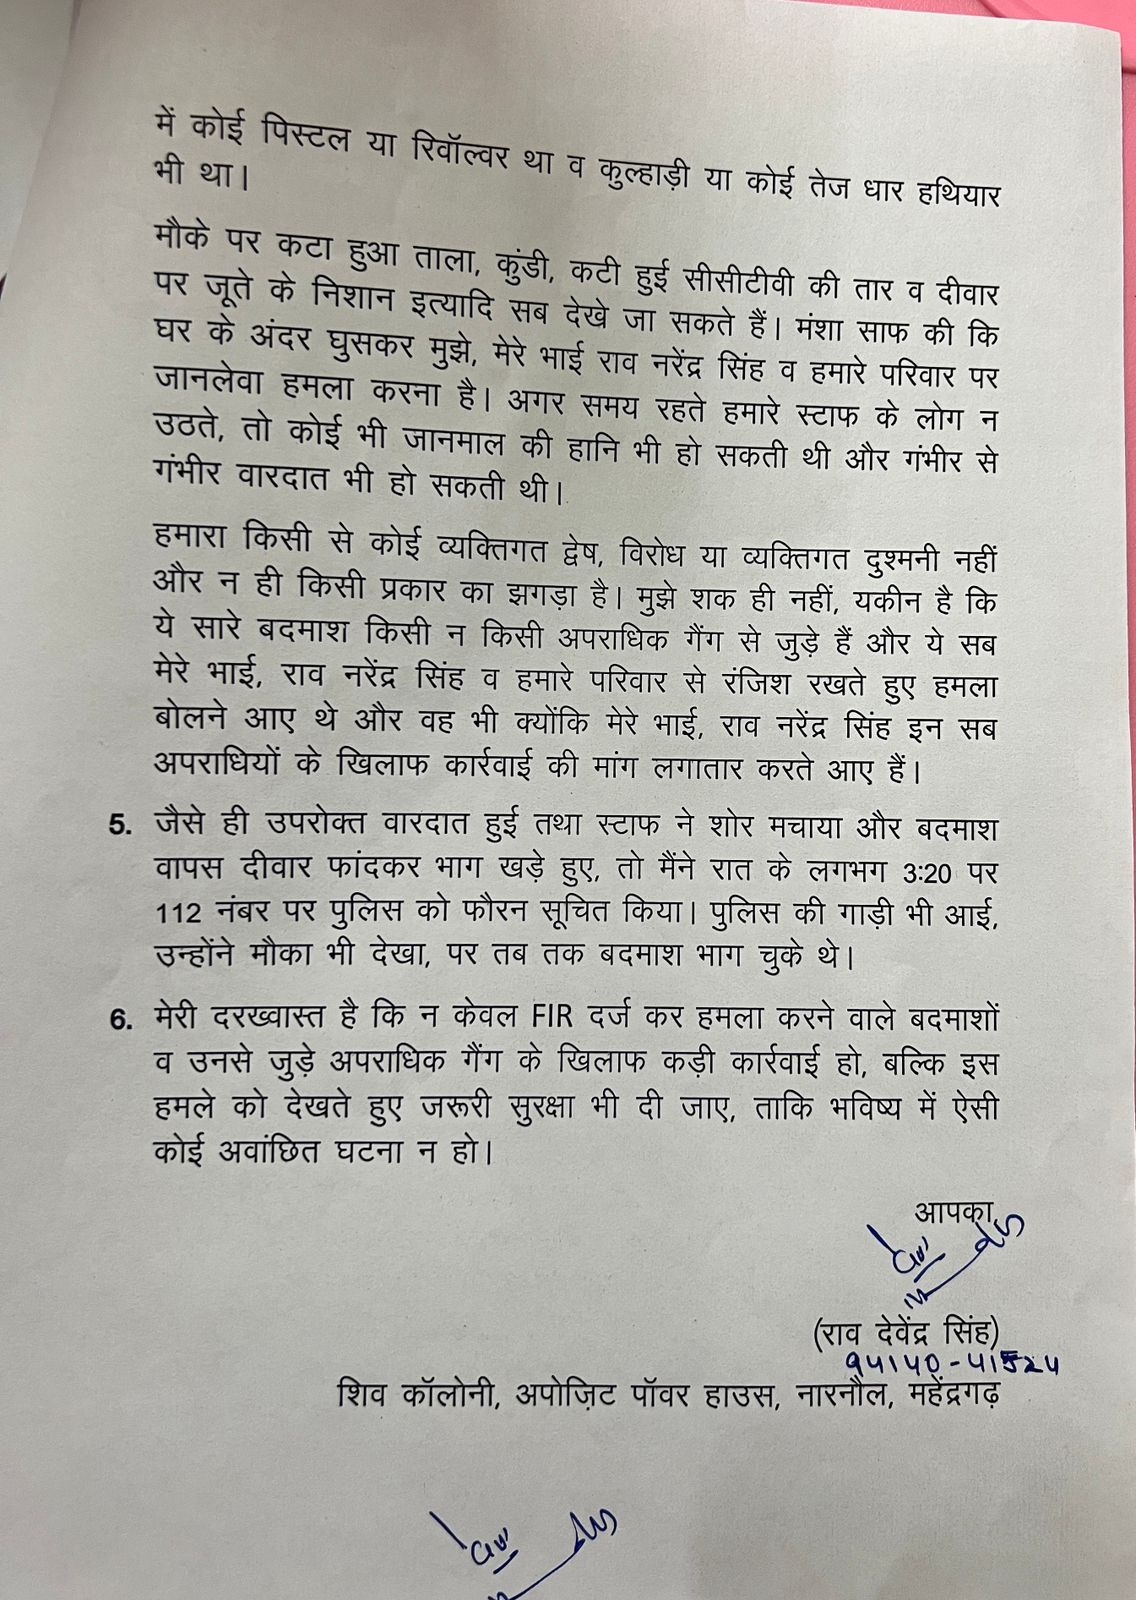 में कोई पिस्टल या रिवॉल्वर था व कुल्हाड़ी या कोई तेज धार हथियार
भी था।
मौके पर कटा हुआ ताला, कुंडी, कटी हुई सीसीटीवी की तार व दीवार
पर जूते के निशान इत्यादि सब देखे जा सकते हैं। मंशा साफ की कि
घर के अंदर घुसकर मुझे, मेरे भाई राव नरेंद्र सिंह व हमारे परिवार पर
जानलेवा हमला करना है। अगर समय रहते हमारे स्टाफ के लोग न
उठते, तो कोई भी जानमाल की हानि भी हो सकती थी और गंभीर से
गंभीर वारदात भी हो सकती थी।
हमारा किसी से कोई व्यक्तिगत द्वेष, विरोध या व्यक्तिगत दुश्मनी नहीं
और न ही किसी प्रकार का झगड़ा है। मुझे शक ही नहीं, यकीन है कि
ये सारे बदमाश किसी न किसी अपराधिक गैंग से जुड़े हैं और ये सब
मेरे भाई, राव नरेंद्र सिंह व हमारे परिवार से रंजिश रखते हुए हमला
बोलने आए थे और वह भी क्योंकि मेरे भाई, राव नरेंद्र सिंह इन सब
अपराधियों के खिलाफ कार्रवाई की मांग लगातार करते आए हैं।
5. जैसे ही उपरोक्त वारदात हुई तथा स्टाफ ने शोर मचाया और बदमाश
वापस दीवार फांदकर भाग खड़े हुए, तो मैंने रात के लगभग 3:20 पर
112 नंबर पर पुलिस को फौरन सूचित किया। पुलिस की गाड़ी भी आई,
उन्होंने मौका भी देखा, पर तब तक बदमाश भाग चुके थे।
6. मेरी दरख्वास्त है कि न केवल FIR दर्ज कर हमला करने वाले बदमाशों
व उनसे जुड़े अपराधिक गैंग के खिलाफ कड़ी कार्रवाई हो, बल्कि इस
हमले को देखते हुए जरूरी सुरक्षा भी दी जाए, ताकि भविष्य में ऐसी
कोई अवांछित घटना न हो।
आपका
(राव देवेंद्र सिंह)
94140-41524
शिव कॉलोनी, अपोज़िट पॉवर हाउस, नारनौल, महेंद्रगढ़